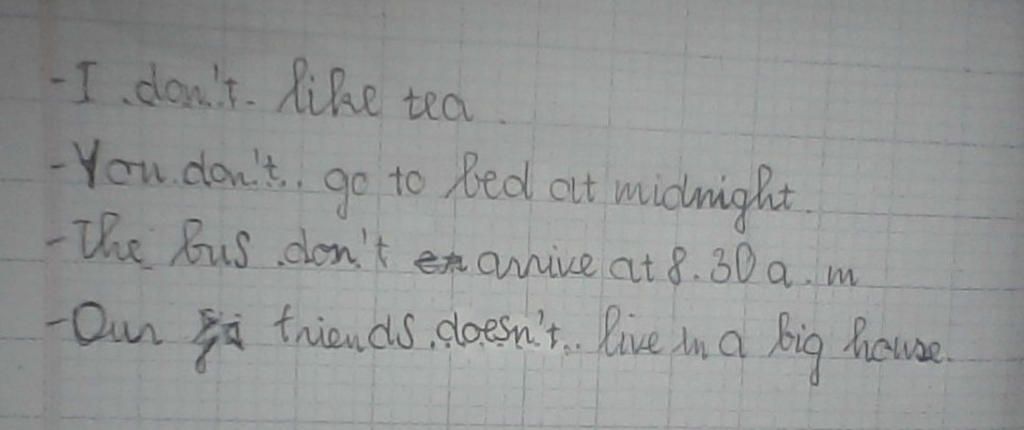 -I .don't. like tea.
-You.don't.. go to bed at midnight.
-The bus .don't arrive at 8.30 a.m
-Our friends.doesn't.. live in a big house.